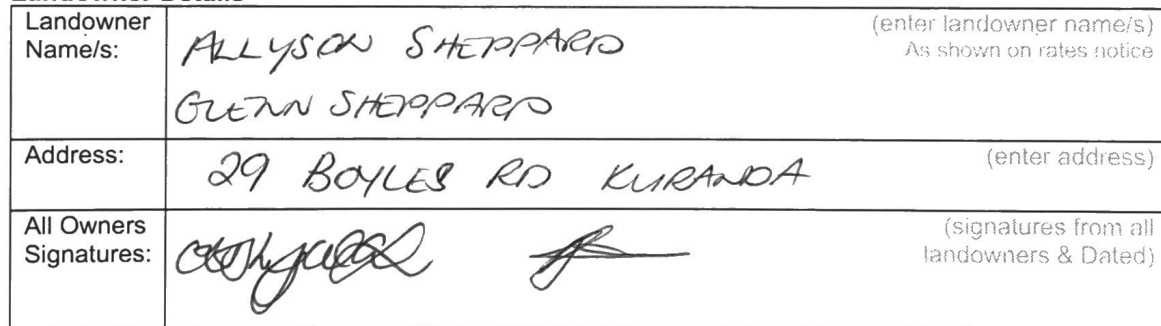 Landowner Details
Landowner Name/s:
ALLYSON SHEPPARD
GLENN SHEPPARD
(enter landowner name/s)
As shown on rates notice
Address:
29 BOYLES RD KURANDA
(enter address)
All Owners Signatures:
(signatures from all
landowners & Dated)